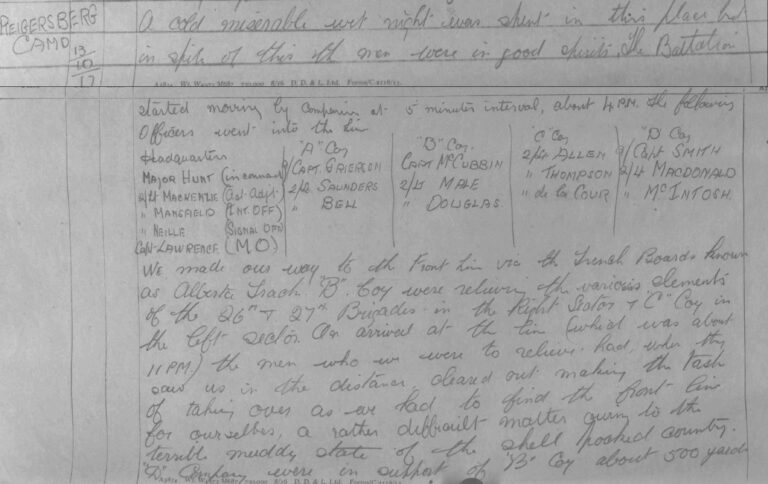 REIGERSBERG
CAMP
13
10
17
A cold miserable wet night was spent in this place but
in spite of this the men were in good spirits. The Battalion
D. D. & L., Ltd. Forms/C.2118/13.
started moving by Companies at 5 minutes interval, about 4 PM. The following
Officers went into the Line
Headquarters
MAJOR HUNT (in command)
2/Lt MACKENZIE (Act. Adjt.)
" MANSFIELD (INT. OFF)
" NEILLE (SIGNAL OFF)
Capt. LAWRENCE (M O)
"A" Coy
CAPT. GRIERSON
2/Lt SAUNDERS
" BELL
"B" Coy.
CAPT. McCUBBIN
2/Lt MALE
" DOUGLAS.
"C" Coy
2/Lt ALLEN
" THOMPSON
" de la COUR
"D" Coy
Capt SMITH
2/Lt MACDONALD
" McINTOSH
We made our way to the Front Line via the Trench Boards known
as Alberta Track. "B" Coy were relieving the various elements
of the 26th & 27th Brigades in the Right Sector & "C" Coy in
the left sector. On arrival at the line (which was about
11 PM.) the men who we were to relieve had, when they
saw us in the distance, cleared out making the task
of taking over as we had to find the front line
for ourselves, a rather difficult matter owing to the
terrible muddy state of the shell pocked country.
"D" Company were in support of "B" Coy about 500 yards
D. D. & L., Ltd.